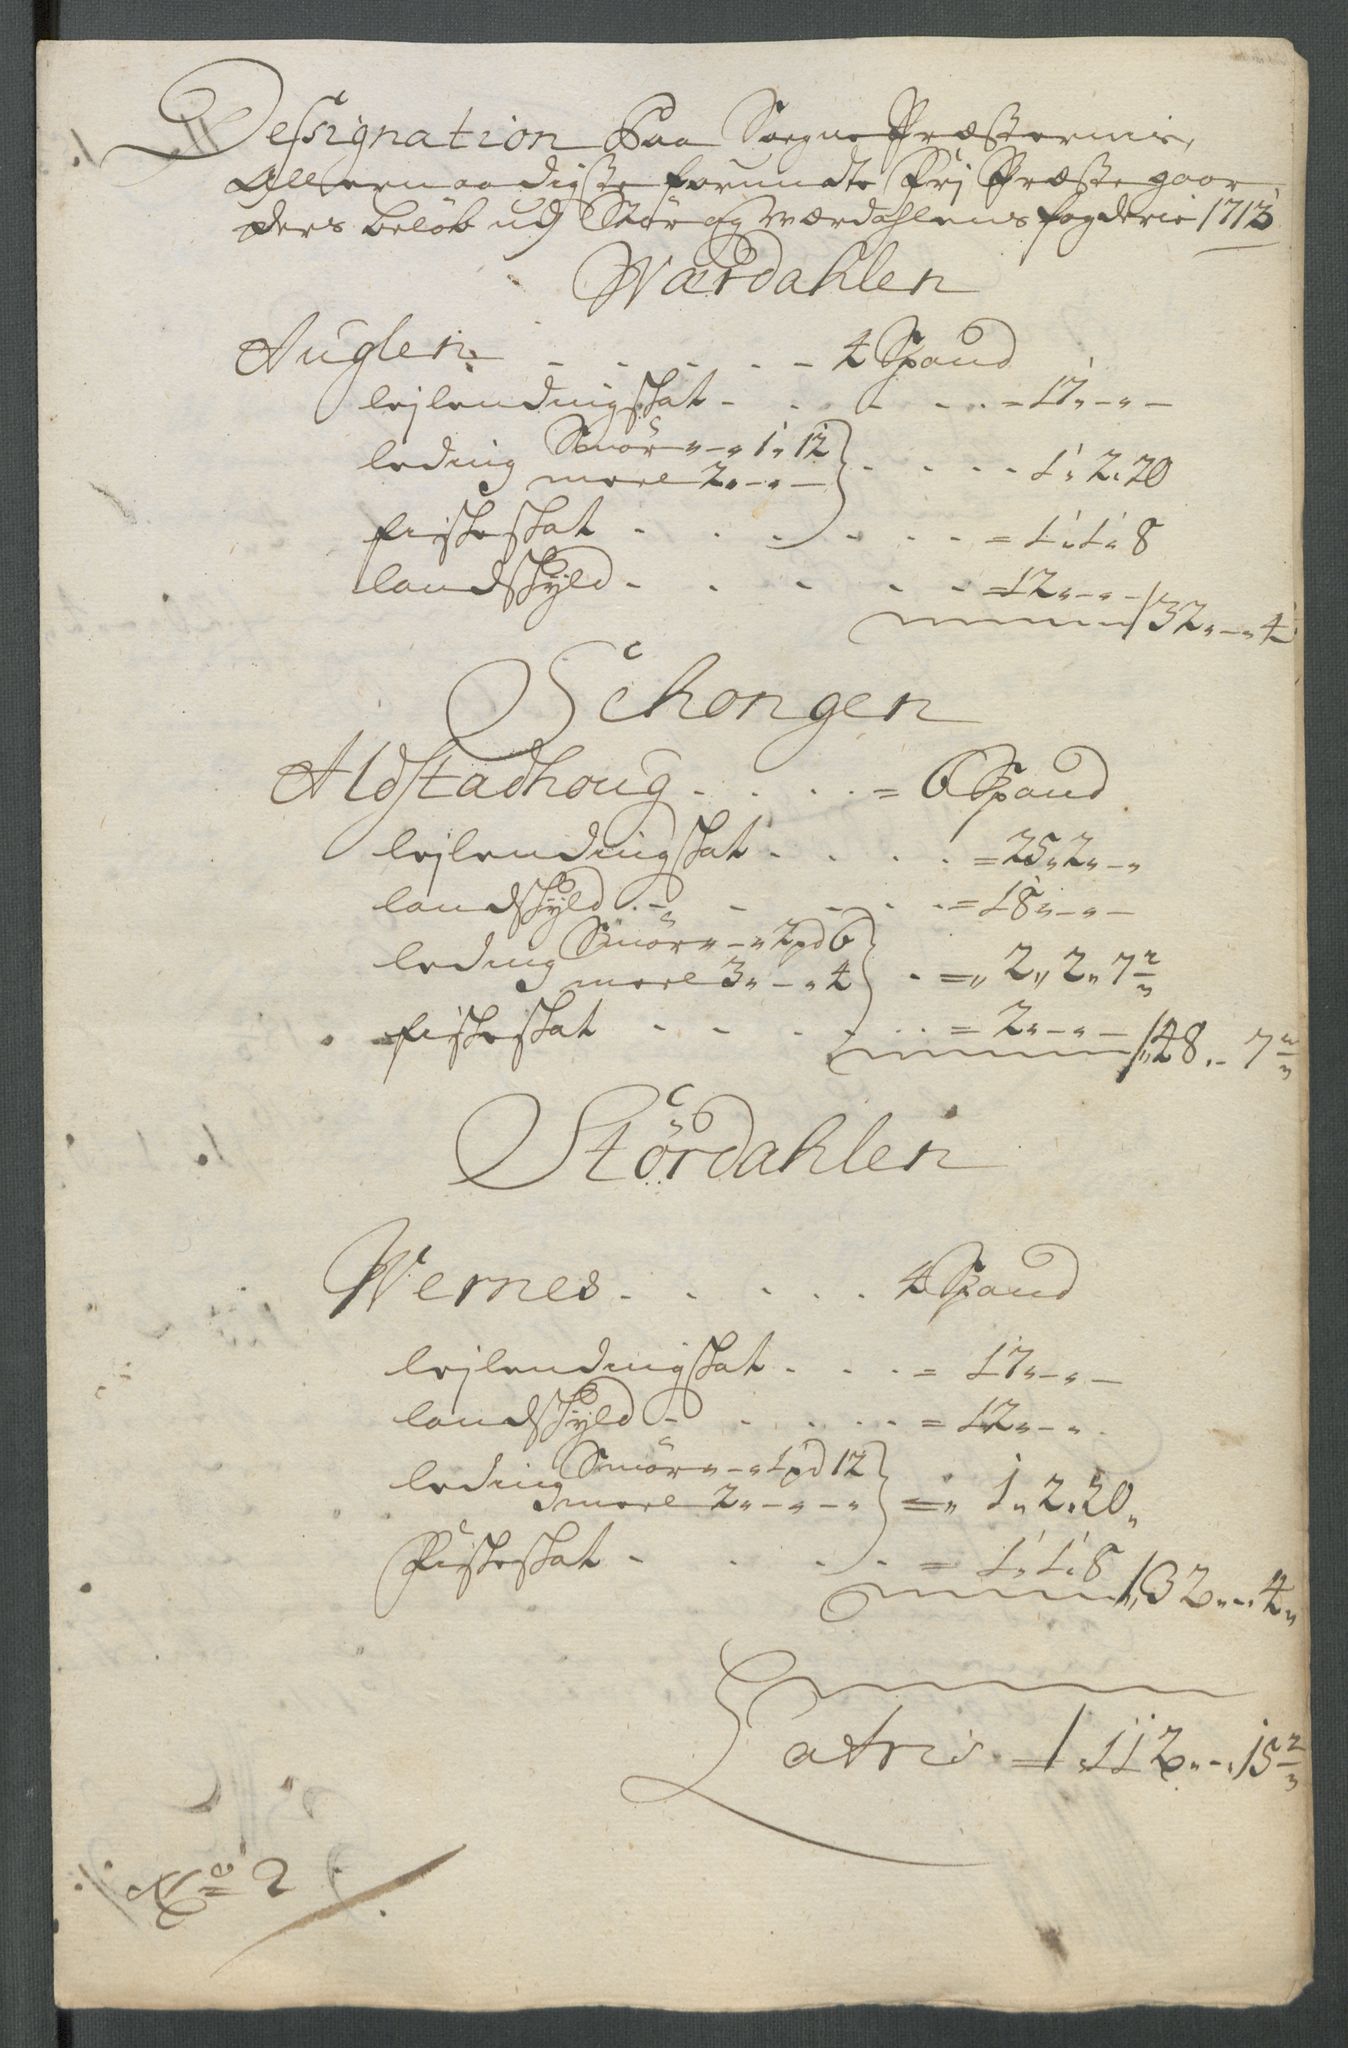 Dessignation Paa Sogne Præsternis,
Allernaadigste forundte Frj Præste gaar
ders beløb udj Stør og Wærdahlens fogderie 1713
Wærdahlen
Auglen - - - - - 4 Spand
lejlendingskat - - - - = 17„-„-
leding Smör„-„1„12
meel 2„-„- - - - - 1„2„20
fiskeskat - - - - - = 1„1„8
landskyld - - - - - = 12„-„-
32„-„4
Schongen
Aldstadhoug - - - - = 6 Spand
lejlendingskat - - - - = 25„2„-„
landskyld - - - - - = 18„-„-
leding Smör„-„2pd 6
meel 3„-„4 - =„ 2„2„7 2/3
fiskeskat - - - - - = 2„-„-
48„- 7 2/3
Stördahlen
Wernes - - - - - 4 Spand
lejlendingskat - - - = 17„-„-
landskyld - - - - - = 12„-„
leding Smör„-„1pd 12
meel 2„-„-„ =„ 1„2„20„
Fiskeskat - - - - = 1„1„8
32„-„4„
Latris = 112„-„15 2/3
No 2